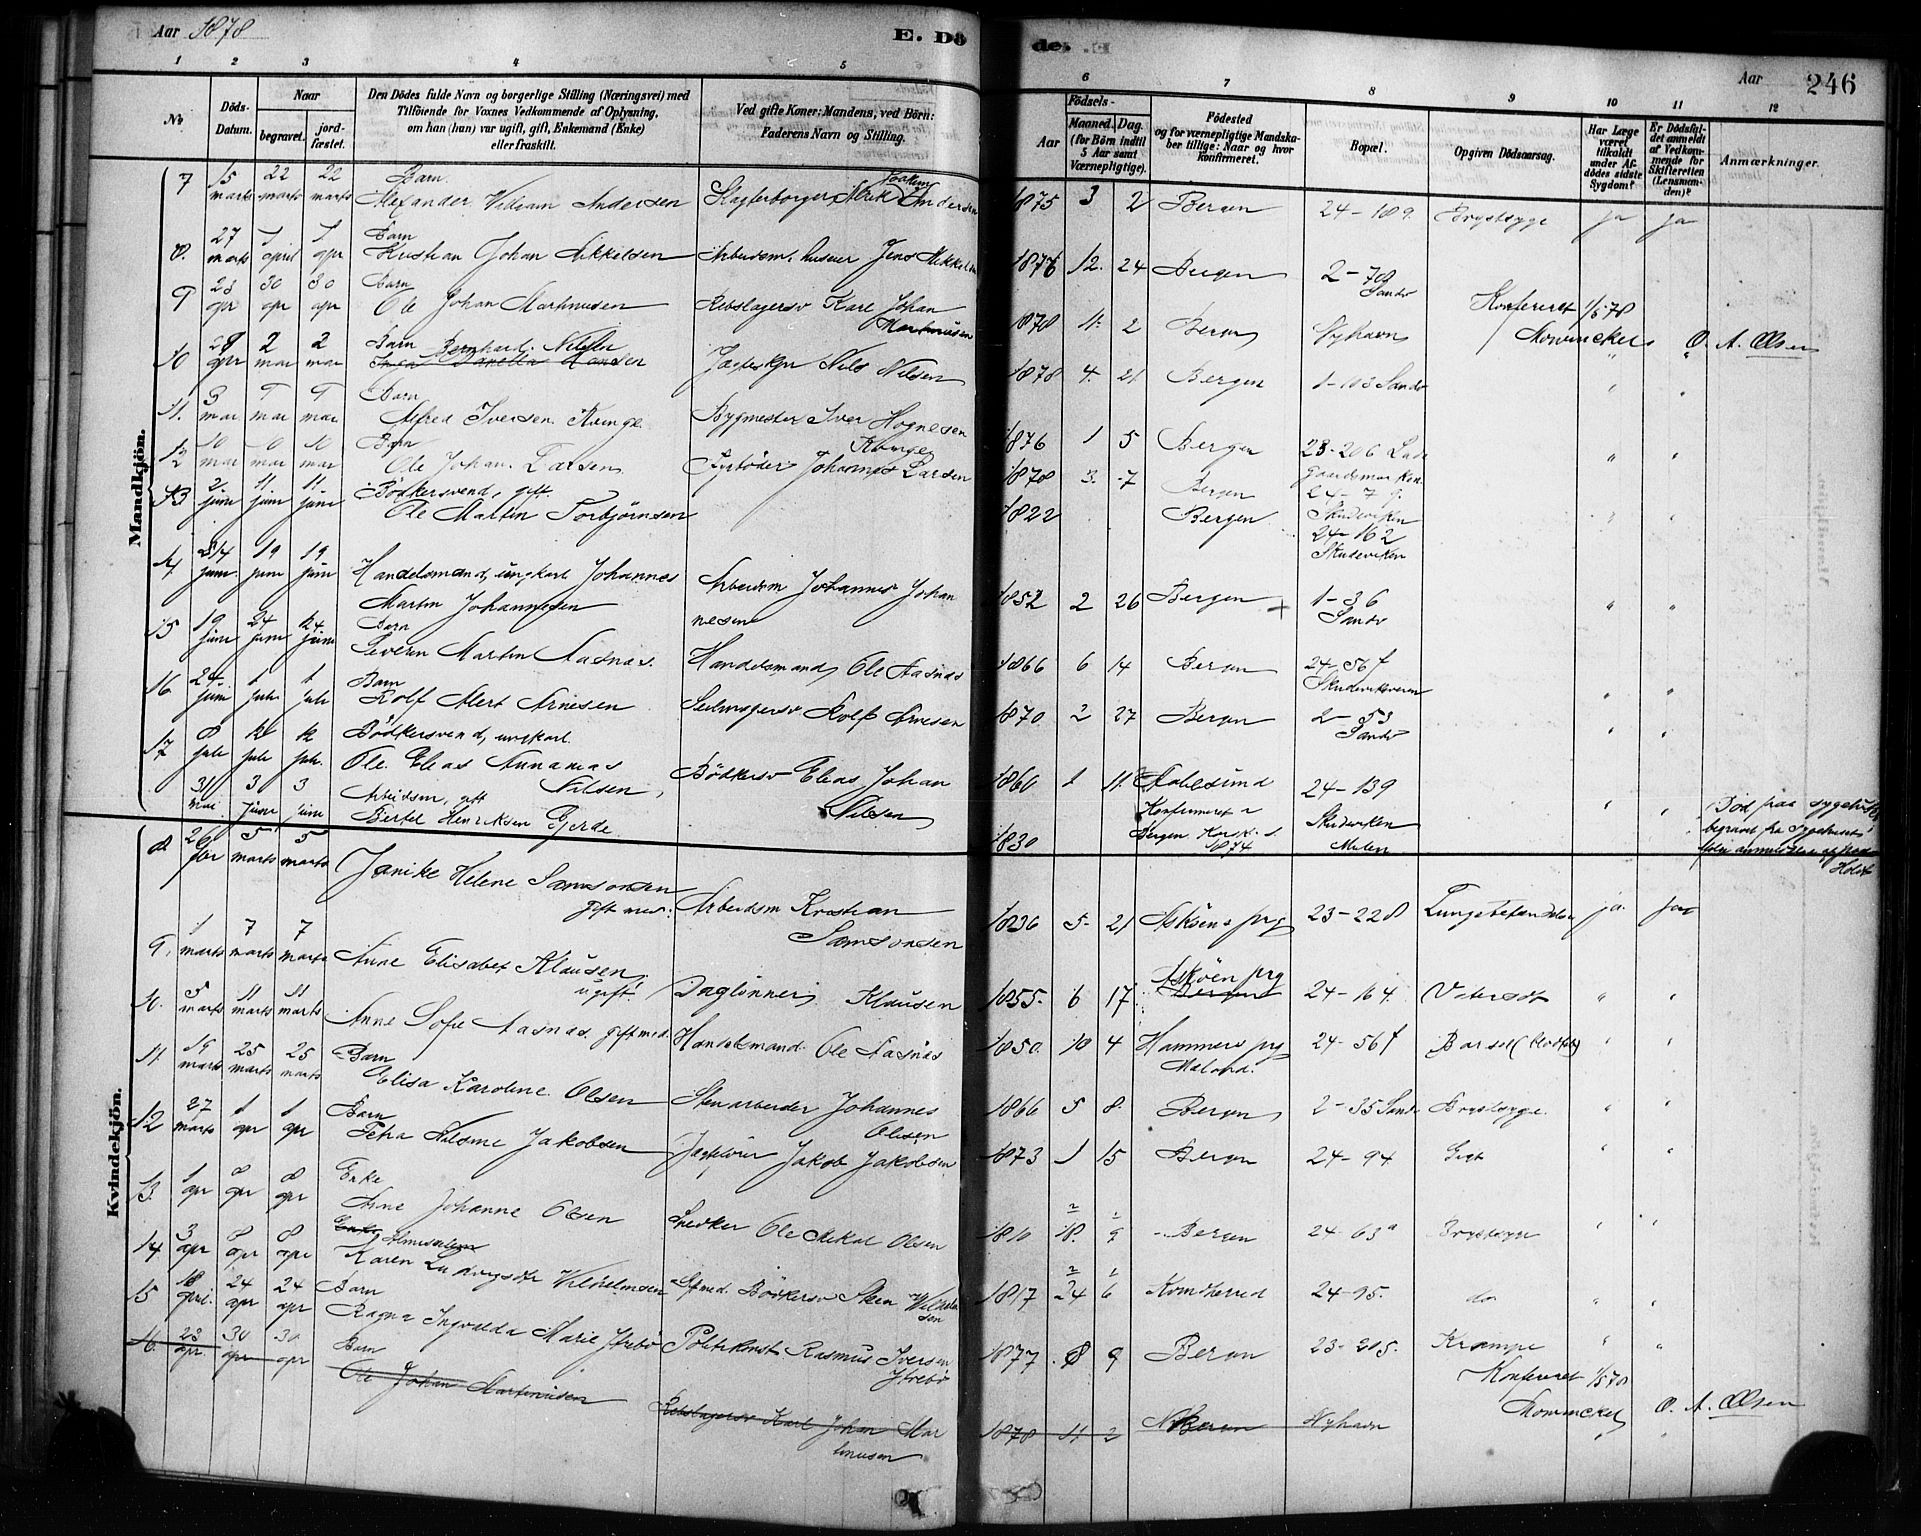 Aar 1878
E. Dö
de.
Aar
246
1 2 3 4 5
6 7 8 9 10 11 12
No
Döds-Datum.
Naar
begravet.
jord-fæstet.
Den Dödes fulde Navn og borgerlige Stilling (Næringsvei) med
Tilföiende for Voxnes Vedkommende af Oplysning,
om han (hun) var ugift, gift, Enkemand (Enke)
eller fraskilt.
Ved gifte Koner: Mandens, ved Börn:
Faderens Navn og Stilling.
Födsels-
Aar
Maaned. Dag.
(for Börn indtil 5 Aar samt Værnepligtige).
Födested
og for værnepligtige Mandska-
ber tillige: Naar og hvor
konfirmeret.
Bopæl.
Opgiven Dödsaarsag.
Har Læge været tilkaldt under Afdödes sidste Sygdom?
Er Dödsfaldet anmeldt af Vedkommende for Skifteretten (Lensmanden)?
Anmærkninger.
Mandkjön.
7 15 marts 22 marts 22 marts Barn Alexander Andersen Andersen 1875 3 2 Bergen 24-189. Brystsyge ja ja
8. 27 marts 1 april 1 apr Barn Kristian Johan Mikkelsen Jens Mikkelsen 1876 12. 24 Bergen 2-78 Sandv
9 23 apr 30 apr 30 apr Barn Ole Johan Martinusen Rebslagersv Karl Johan Martinusen 1878 11. 2 Bergen Nyhavn Konfereret 1/5 78 Mowinckel O. A. Olsen
10 28 apr 2 mai 2 mai Barn Bernhard Nilsen Nils Nilsen 1878 4. 21 Bergen 1-103 Sandv
11. 3 mai 9 mai 9 mai Barn Alfred Iversen Kvinge Bygmester Iver Hognesen Kvinge 1876 1 5 Bergen 23-206 Lade gaardsmarken
12 10 mai 10 mai 10 mai Barn Ole Johan Larsen Fyrböder Johannes Larsen 1878 3. 7 Bergen 24-79. Skudeviken
13 2. juni 11 juni 11 juni Bödkersvend, gift. Ole Martin Torbjörnsen 1822 Bergen 24-162 Skudeviken
14 14 juni 19 juni 19 juni Handelsmand, ungkarl Johannes Martin Johannesen Arbeidsm Johannes Johannesen 1852 2 26 Bergen 1-36 Sandv
15 19 juni 24 juni 24 juni Barn Severin Martin Aasnæs. Handelsmand, Ole Aasnæs 1866 6 14 Bergen 24-56f
16 24 juni 1 juli 1 juli Barn Rolf Alert Arnesen Rolf Arnesen 1870. 2 27 Bergen 2-53 Sandv
17 8 juli 12 juli 12 juli. Bödkersvend, ungkarl. Ole Elias Nilsen, Bödkersv Elias Johan Nilsen 1860 1 11. Aalesund Konfirmeret i Bergen Korsk. 1874 24-139 Skudeviken
31 mai 3 juni 3 juni Arbeidsm, gift Bertel Henriksen Gjerde. 1830 Död paa Sygehuset begravet fra Sygehuset Holdt
Kvindekjön.
8. 26 febr 5 marts 5 marts Janike Helene Samsonsen gift med: Arbeidsm Kristian Samsonsen 1836 5. 21 Asköens prg 23-228 Lungebetændelse ja. ja
9, 1 marts 7 marts 7 marts Anne Elisabet Klausen ugift. Daglönner Klausen 1855. 6 17 Asköen prg Bergen 24-164.
10. 5 marts 11 marts 11 marts Anne Sofie Aasnæs. gift med. Handelsmand Ole Aasnæs 1850. 10 4 Hammers prg 24-56f Barsel
11 19 marts 25 marts 25 marts Barn Elisa Karoline Olsen Stenarbeider Johannes Olsen 1866 5 8. Bergen 2-35 Sandv Brystsyge.
12 27 marts 1 apr 1 apr Barn Petra Nilsine Jakobsen Jakob Jakobsen 1873 1 15 Bergen 24-94
13. 1 apr 8 apr 8 apr Enke Anne Johanne Olsen Snedker Ole Mikal Olsen 1810 18. 9 Bergen 24-63a Brystsyge
14. 3 apr 8 apr 8 apr Enke Karen Ludvigsdtr Vilhelmsen gift med. Bödkersv Vilhelmsen 1817 24 6 Kvindherred 24-95. do
15 18 april. 24 apr 24 apr Barn Ragna Ingvalda Marie Ytrebö Politikonst Rasmus Iversen Ytrebö 1877. 8 9 Bergen 23-215. Krampe
16. 23 apr. 30 apr 30 apr Barn Ole Johan Martinusen Rebslagersv Karl Johan Martinusen 1878 11 2 Bergen Nyhavn Konfereret 1/5 78 Mowinckel O. A. Olsen